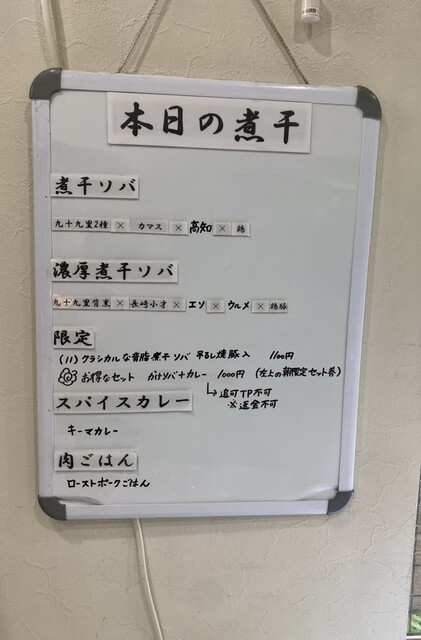 本日の煮干
煮干ソバ
九十九里2種 × カマス × 高知 × 鶏
濃厚煮干ソバ
九十九里背黒 × 長崎小才 × エソ × ウルメ × 鶏豚
限定
(11) クラシカルな背脂煮干ソバ 吊るし焼豚入 1100円
お得なセット かけソバ+カレー 1000円 (左上の朝限定セット券)
↳追可TP不可
※返金不可
スパイスカレー
キーマカレー
肉ごはん
ローストポークごはん